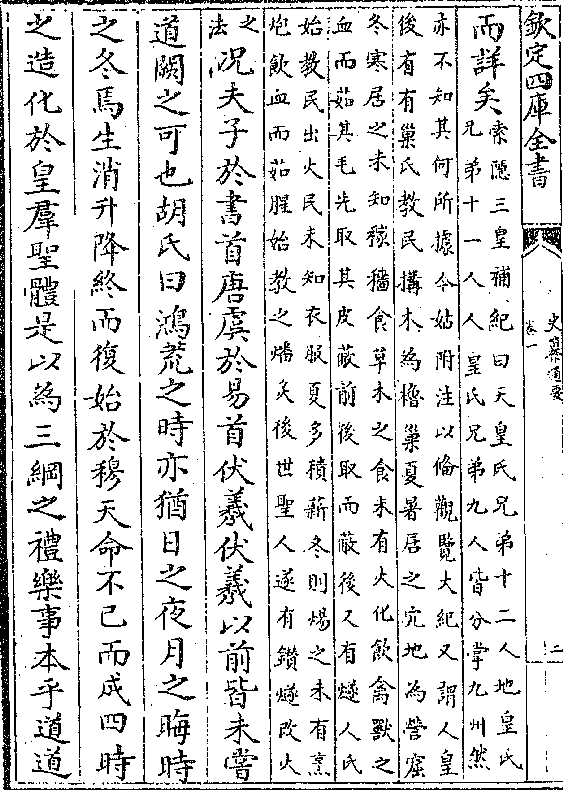 欽定四庫全書
史纂通要
卷一
二
而詳矣
索隱三皇補紀曰天皇氏兄弟十二人地皇氏
兄弟十一人人皇氏兄弟九人皆分掌九州然
亦不知其何所據今姑附注以備觀覽大紀又謂人皇
後有有巢氏教民搆木為櫓巢夏暑居之穴地為營窟
冬寒居之未知稼穡食草木之食未有火化飲禽獸之
血而茹其毛先取其皮蔽前後取而蔽後又有燧人氏
始教民出火民未知衣服夏多積薪冬則煬之未有烹
炮飲血而茹腥始教之燔炙後世聖人遂有鑽燧改火
之
法
況夫子於書首唐虞於易首伏羲伏羲以前皆未嘗
道闕之可也胡氏曰鴻荒之時亦猶日之夜月之晦時
之冬焉生消升降終而復始於穆天命不已而成四時
之造化於皇羣聖體是以為三綱之禮樂事本乎道道